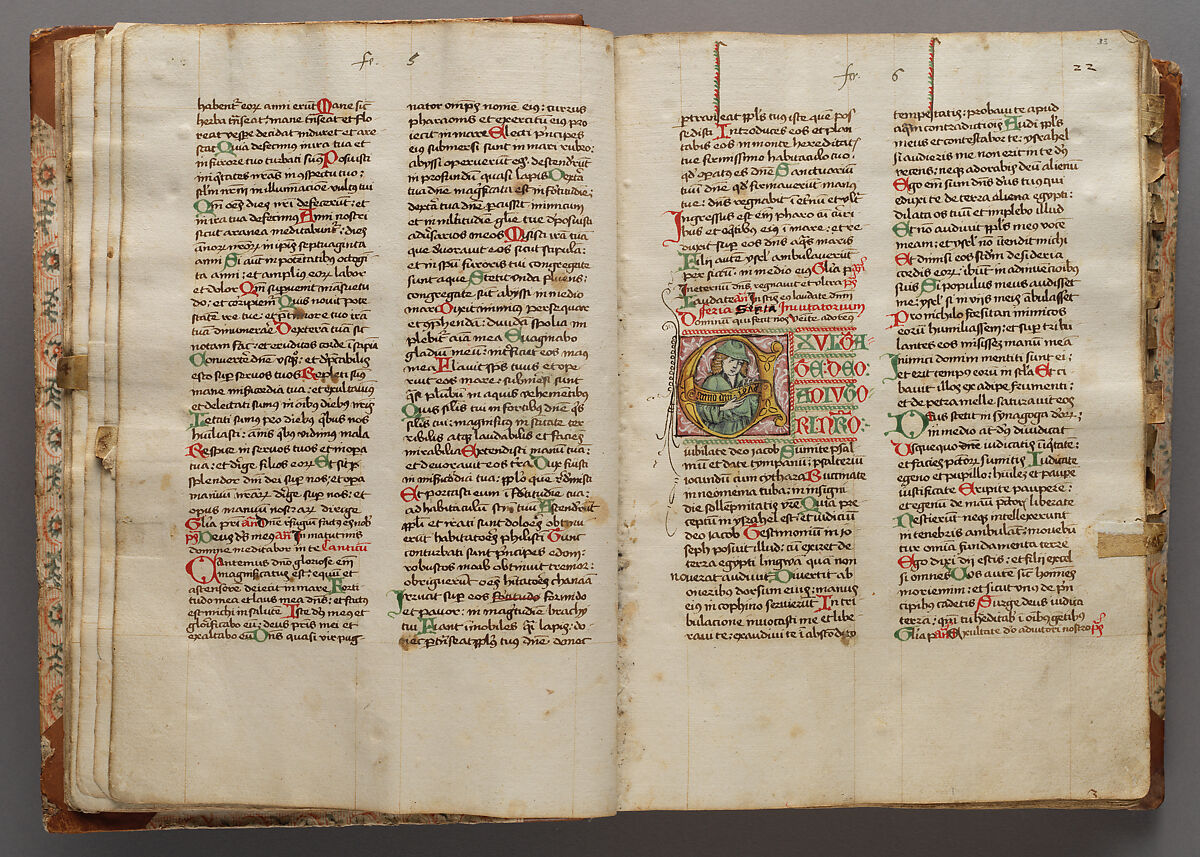 fe. 5
habent͛ eoꝝ anni erūt Mane sic̄
herba trāseat: mane trāseat et flo
reat vesꝑe decidat induret et are
scat Quia defecimꝰ in ira tua et
in furore tuo turbati sumꝰ Posuisti
in conspectu tuo:
in illuminacōe vultꝰ tui
Qm̄ oēs dies nr̄i defecerūt: et
in ira tua defecimꝰ Anni nostri
sicut aranea meditabunt͛: dies
septuaginta
anni Si aut̄ in potentatibꝰ
ta anni: et ampliꝰ eoꝝ labor
et dolor Qm̄ supuenit māsuetu
do: et corripiem͛ Quis novit pote
statē ire tue: et iram
tuā dinumerare Dexterā tuā sic̄
notam fac: et eruditos corde ī sapiā
Convertere dn̄e
esto suꝑ servos tuos Repleti sumꝰ
mane misericordia tua: et exultavimꝰ
et delectati sumꝰ in oībꝰ diebꝰ nr̄is
Letati sumꝰ pro diebꝰ qbꝰ nos
humiliasti: annis qbꝰ vidimꝰ mala
Respice in servos tuos et in opa
tua: et dirige filios eoꝝ Et sit
splendor dn̄i dei suꝑ nos: et opa
manuū nr̄aꝝ dirige suꝑ nos: et
opus manuū nostraꝝ dirige
Glīa pr̄i an̄ Dn̄e refugium factꝰ es nob̄
pꝰ Deus dꝰ meꝰ an̄ In matutinis
domine meditabor in te Canticū
Cantemus dn̄o gloriose em̄
magnificatus est: equū et
ascensorē deiecit in mare Forti
tudo mea et laus mea dn̄s: et factus
est michi in salutē Iste dꝰ meꝰ et
glorificabo eū: deus pr̄is mei et
exaltabo eū Dn̄s quasi vir pug
nator omīps nomē eiꝰ: currus
pharaonis et exercitū eiꝰ pro
iecit in mare Electi pⁱncipes
eiꝰ submersi sunt in mari rubro:
abyssi operuerūt eos descenderūt
in profundū quasi lapis Dextera
tua dn̄e magⁱficata est in fortitudīe:
dextera tua dn̄e percussit inimicum
et in multitudīe glīe tue deposuisti
adversarios meos Misisti irā tuā
que devoravit eos sicut stipulā:
et in spū furoris tui congregate
sunt aque Stetit unda fluens:
congregate sūt abyssi in medio
mari Dixit inimicꝰ persequar
et cōprehendā: dividā spolia im
plebit͛ aīa mea Evaginabo
gladiū meū: int̄ficiet eos manꝰ
mea Flavit spūs tuus et ope
ruit eos mare: submersi sunt
quasi plūbū in aquis vehemētibꝰ
Quis silīs tui in fortibꝰ dn̄e qs
silīs tui: magnificꝰ in sc̄itate ter
ribilis atqꝫ laudabilis et faciēs
mirabilia Extendisti manū tuā:
et devoravit eos terra Dux fuisti
in misericōdia tua: pplo que redemisti
Et portasti eum ī fortitudīe tua:
ad habitaculū scm̄ tuū Ascenderūt
ppli et irati sunt dolores obtinu
erūt habitatores philistī Tunc
conturbati sunt pⁱncipes edom:
robustos moab obtinuit tremor:
obriguerūt oēs hītatores chanaā
Irruat suꝑ eos fortitudo formido
et pavor: in magⁱtudīe brachij
tui Fiant īmobiles qⁱ lapis: do
nec ꝑtrāseat ppls tuꝰ dn̄e: donec
fer. 6
83
22
ptrāseat ppls tuus iste quem pos
sedisti Introduces eos et plan
tabis eos in monte hereditatꝭ
tue firmissimo habitaculo tuo
qd̄ opatꝰ es dn̄e Sanctuariū
tuū dn̄e qd̄ firmaverūt manꝰ
tue: dn̄s regnabit ī etnū et ultª
Ingressus est em̄ pharo cū curri
bus et equitibꝰ eiꝰ ī mare: et re
duxit suꝑ eos dn̄s aqs maris
Filii autē ysrl̄ ambulaverūt
per siccū: in medio eiꝰ Glīa pr̄i
In eternū dn̄s regnavit et ultra pꝰ
Laudate an̄ In scīs eꝰ laudate dnm̄
Feria Sexta Invitatorium
Dominū qui fecit nos Venite adoremꝰ
EXVLTA-
TE: DEO:
ADIVTO-
RI: NRO:
iubilate deo iacob Sumite psal
mū et date tympanū: psalteriū
iocundū cum cythara Buccinate
in neomenia tuba: in insigni
die sollepnitatis vr̄e Quia pre
ceptū in ysrahel est: et iudiciū
deo iacob Testimonium in io
seph posuit illud: cū exiret de
terra egypti lingwā quā non
noverat audivit Divertit ab
oneribꝰ dorsum eius: manus
eiꝰ in cophino servierūt In tri
bulacione invocasti me et libe
ravi te: exaudivi te ī abscōdito
tempestatis: probavi te apud
aquam contradictiōis Audi ppls
meus et contestabor te: ysrahel
si audieris me non erit in te dꝰ
recens: neqꝫ adorabis deū alienū
Ego em̄ sum dn̄s dꝰ tuꝰ qui
eduxi te de terra aliena egypti:
dilata os tuū et implebo illud
Et nō audivit ppls meꝰ vocē
meam: et ysrl̄ nō intendit michi
Et dimisi eos scdm̄ desideria
cordis eoꝝ: ibūt in adinvēcionibꝰ
suis Si populus meus audisset
me: ysrl̄ si in viis meis ābulasset
Pro nichilo forsitan inimicos
eorū humiliassem: et suꝑ tribu
lantes eos misissē manū meā
Inimici domini mentiti sunt ei:
et erit tempꝰ eorū in secula Et ci
bavit illos ex adipe frumenti:
et de petra melle saturavit eos
Deus stetit in synagoga deoꝝ:
in medio aut̄ deos diiudicat
Usquequo iudicatis iniqtatē:
et facies pctōꝝ sumitis Iudicate
egeno et pupillo: hūilē et paupe
iustificate Eripite paupere:
et egenū de manu pctōris liberate
Nescierūt neqꝫ intellexerūt
in tenebris ambulāt: movebū
tur omnia fundamenta terre
Ego dixi dii estis: et filii excel
si omnes Vos autē sicut hoīes
moriemini: et sicut unꝰ de pⁱn
cipibꝰ cadetis Surge deus iudica
terrā: qm̄ tu hereditabis ī oībꝰ gentibꝰ
Glīa p an̄ Exultate deo adiutori nostro pꝰ